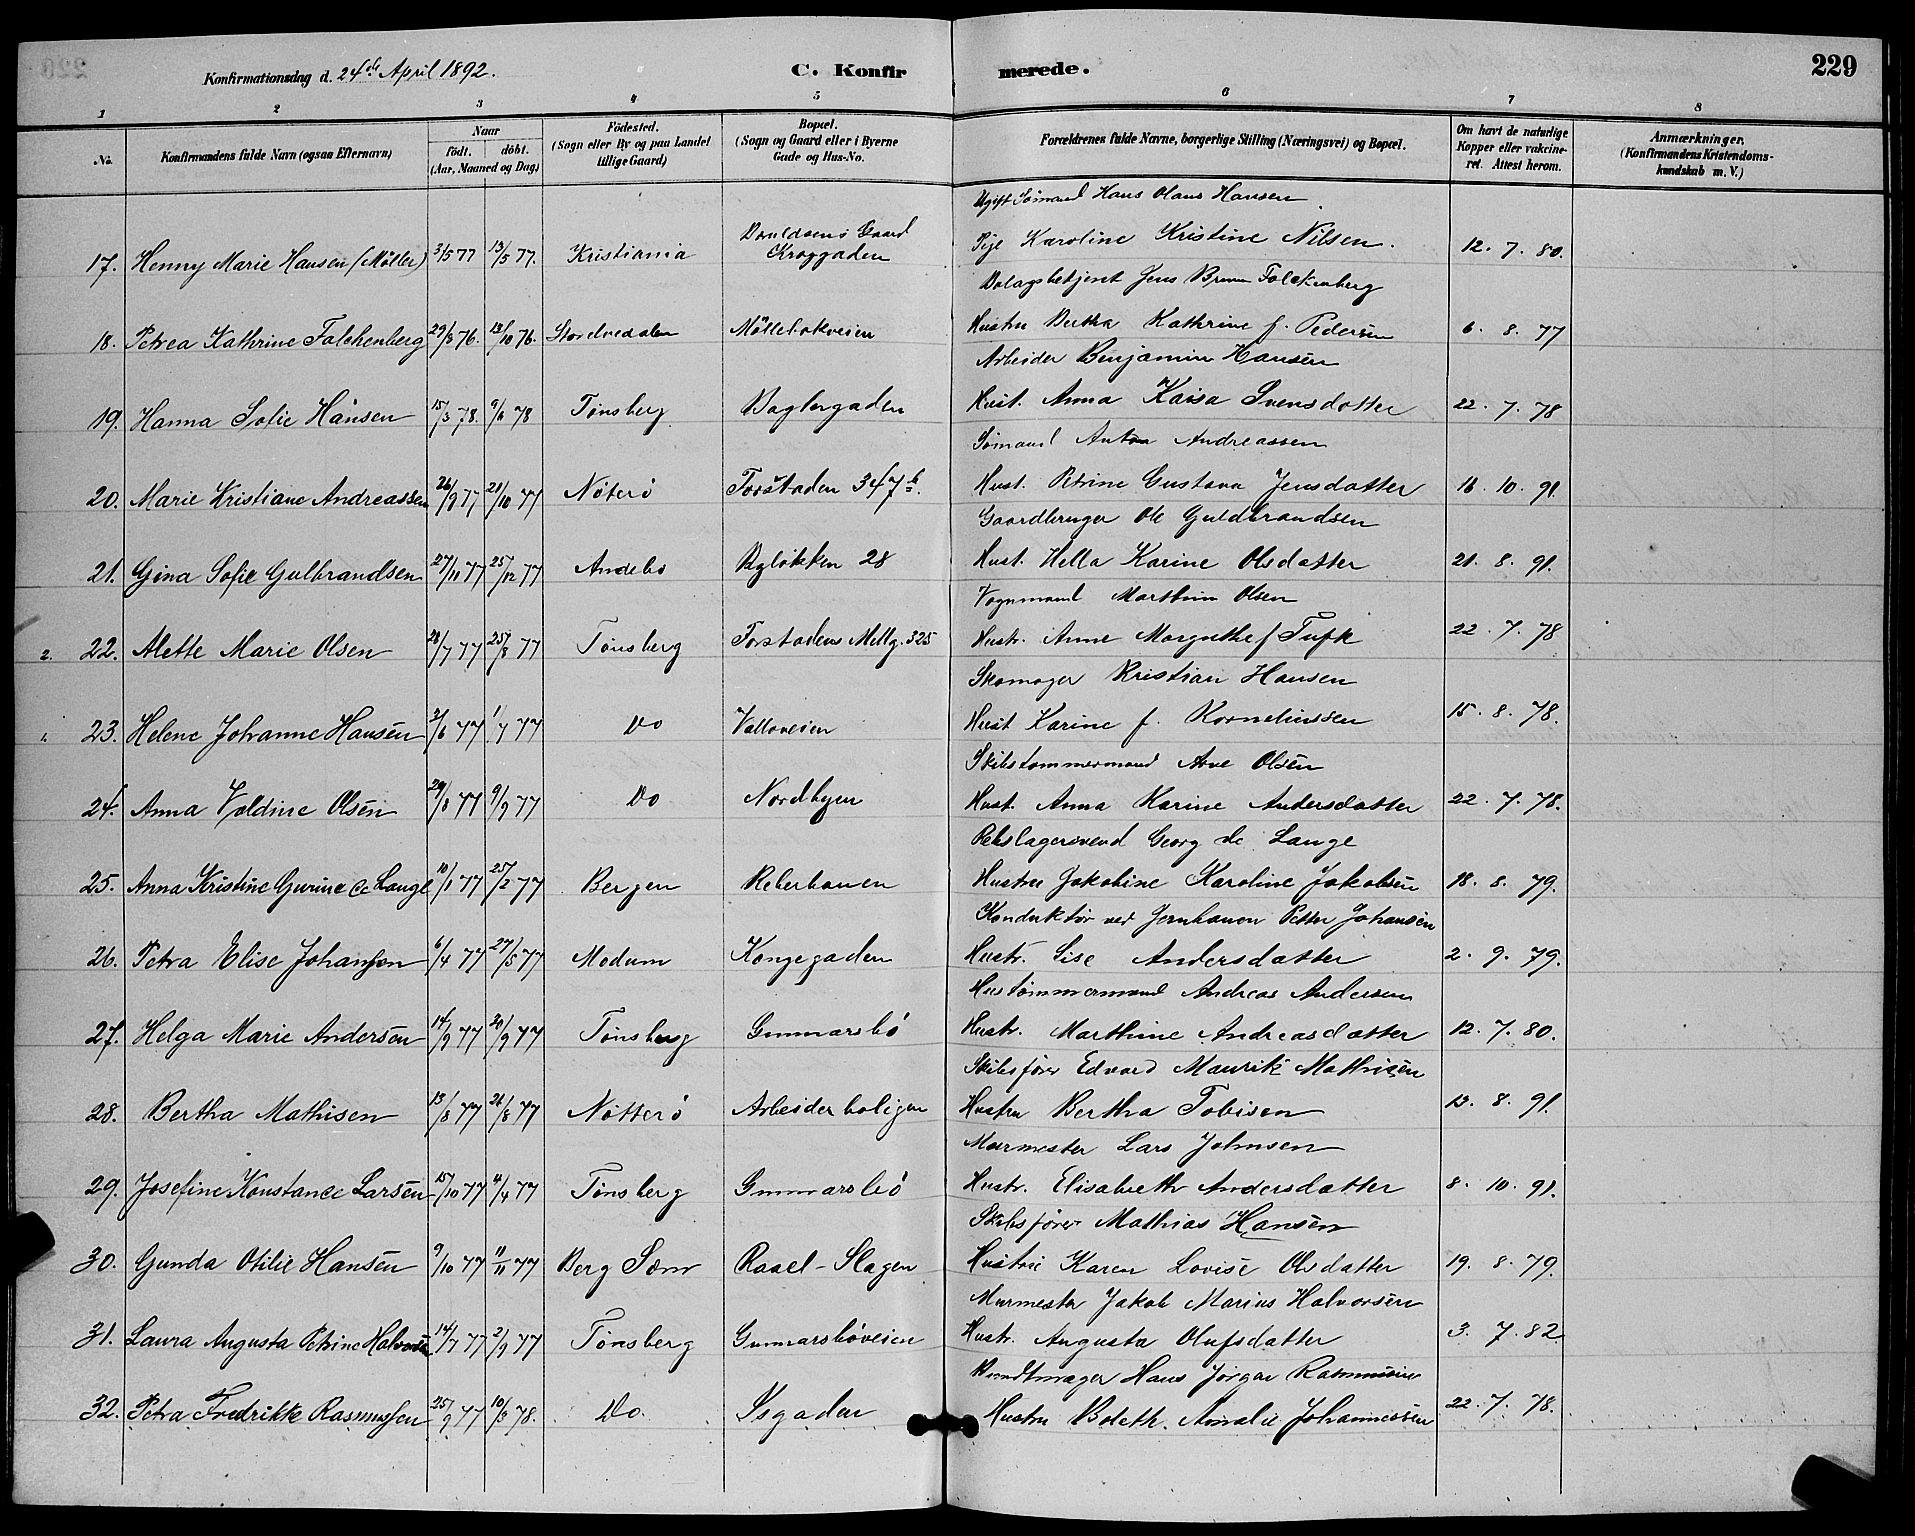 Konfirmationsdag d. 24de April 1892. C. Konfirmerede. 229
1 2 3 4 5 6 7 8
No. Konfirmandens fulde Navn (ogsaa Efternavn) Naar födt. döbt. (Aar, Maaned og Dag) Födested. (Sogn eller By og paa Landet tillige Gaard) Bopæl. (Sogn og Gaard eller i Byerne Gade og Hus-No. Forældrenes fulde Navne, borgerlige Stilling (Næringsvei) og Bopæl. Om havt de naturlige Kopper eller vakcineret. Attest herom. Anmærkninger. (Konfirmandens Kristendomskundskab m. V.)
Ugift Sømand Hans Olaus Hansen
17. Henny Marie Hansen (Møller) 3/5 77 13/5 77. Kristiania Gaard Kroggaden Pige Karoline Kristine Nilsen. 12. 7. 80.
Jens Falckenberg
18. Petrea Kathrine Falchenberg 29/8 76. 13/10 76. Møllebakveien Hustru Bertha Kathrine f. Pedersen 6. 8. 77
Arbeider Benjamin Hansen
19. Hanna Sofie Hansen 15/3 78. 9/6 78 Tønsberg Baglergaden Hust. Anna Kaisa Svensdatter 22. 7. 78
Sømand Anton Andreassen
20. Marie Kristiane Andreassen 26/9 77 21/10 77 Nøterø Forstaden 347 b. Hust. Petrine Gustava Jensdatter 16. 10. 91.
Gaardbruger Ole Guldbrandsen
21. Gina Sofie Gulbrandsen 27/11 77 25/12 77 Andebo Byløkken 28 Hust. Hella Karine Olsdatter 21. 8. 91.
Vognmand Marthin Olsen
2. 22. Alette Marie Olsen 28/7 77 25/8 77 Tønsberg Forstadens Mellg. 325 Hustr. Anne Margrethe f Tufte 22. 7. 78
Skomager Kristian Hansen
1. 23. Helene Johanne Hansen 2/6 77 1/7 77 Do Valloveien Hust Karine f. Korneliussen 15. 8. 78.
Skibstømmermand Arve Olsen
24. Anna Valdine Olsen 29/8 77 9/9 77 Do Nordbyen Hust. Anna Karine Andersdatter 22. 7. 78.
Rebslagersvend Georg de Lange
25. Anna Kristine Gurine de Lange 10/1 77 25/2 77 Bergen Reberbanen Hustru Jakobine Karoline Jakobsen 18. 8. 79.
Konduktør ved Jernbanen Petter Johansen
26. Petra Elise Johansen 6/4 77 27/5 77 Modum Kongegaden Hustr. Lise Andersdatter 2. 9. 79.
Hustømmermand Andreas Andersen
27. Helga Marie Andersen 14/9 77 20/9 77 Tønsberg Gunnarsbø Hustr. Marthine Andreasdatter 12. 7. 80.
Skibsfører Edvard Maurik Mathisen
28. Bertha Mathisen 13/8 77 26/8 77 Nøtterø Arbeiderboligen Hustru Bertha Tobisen 13. 8. 91.
Murmester Lars Johnsen
29. Josefine Konstance Larsen 15/10 77 4/4 77 Tønsberg Gunnarsbø Hustr. Elisabeth Andersdatter 8. 10. 91.
Skibsfører Mathias Hansen
30. Gunda Otilie Hansen 9/10 77 11/11 77 Berg Sem Raael-Slagen Hustru Karen Lovise Olsdatter 19. 8. 79.
Murmester Jakob Marius Halvorsen
31. Laura Augusta Petrine Halvorsen 14/7 77 2/9 77 Tønsberg Gunnarsbøveien Hustr. Augusta Olufsdatter 3. 7. 82.
Bundtmager Hans Jørgen Rasmussen
32. Petra Fredrikke Rasmussen 25/9 77 10/3 78. Do. Isgaden Hustru Boleth. Amalie Johannessen 22. 7. 78.